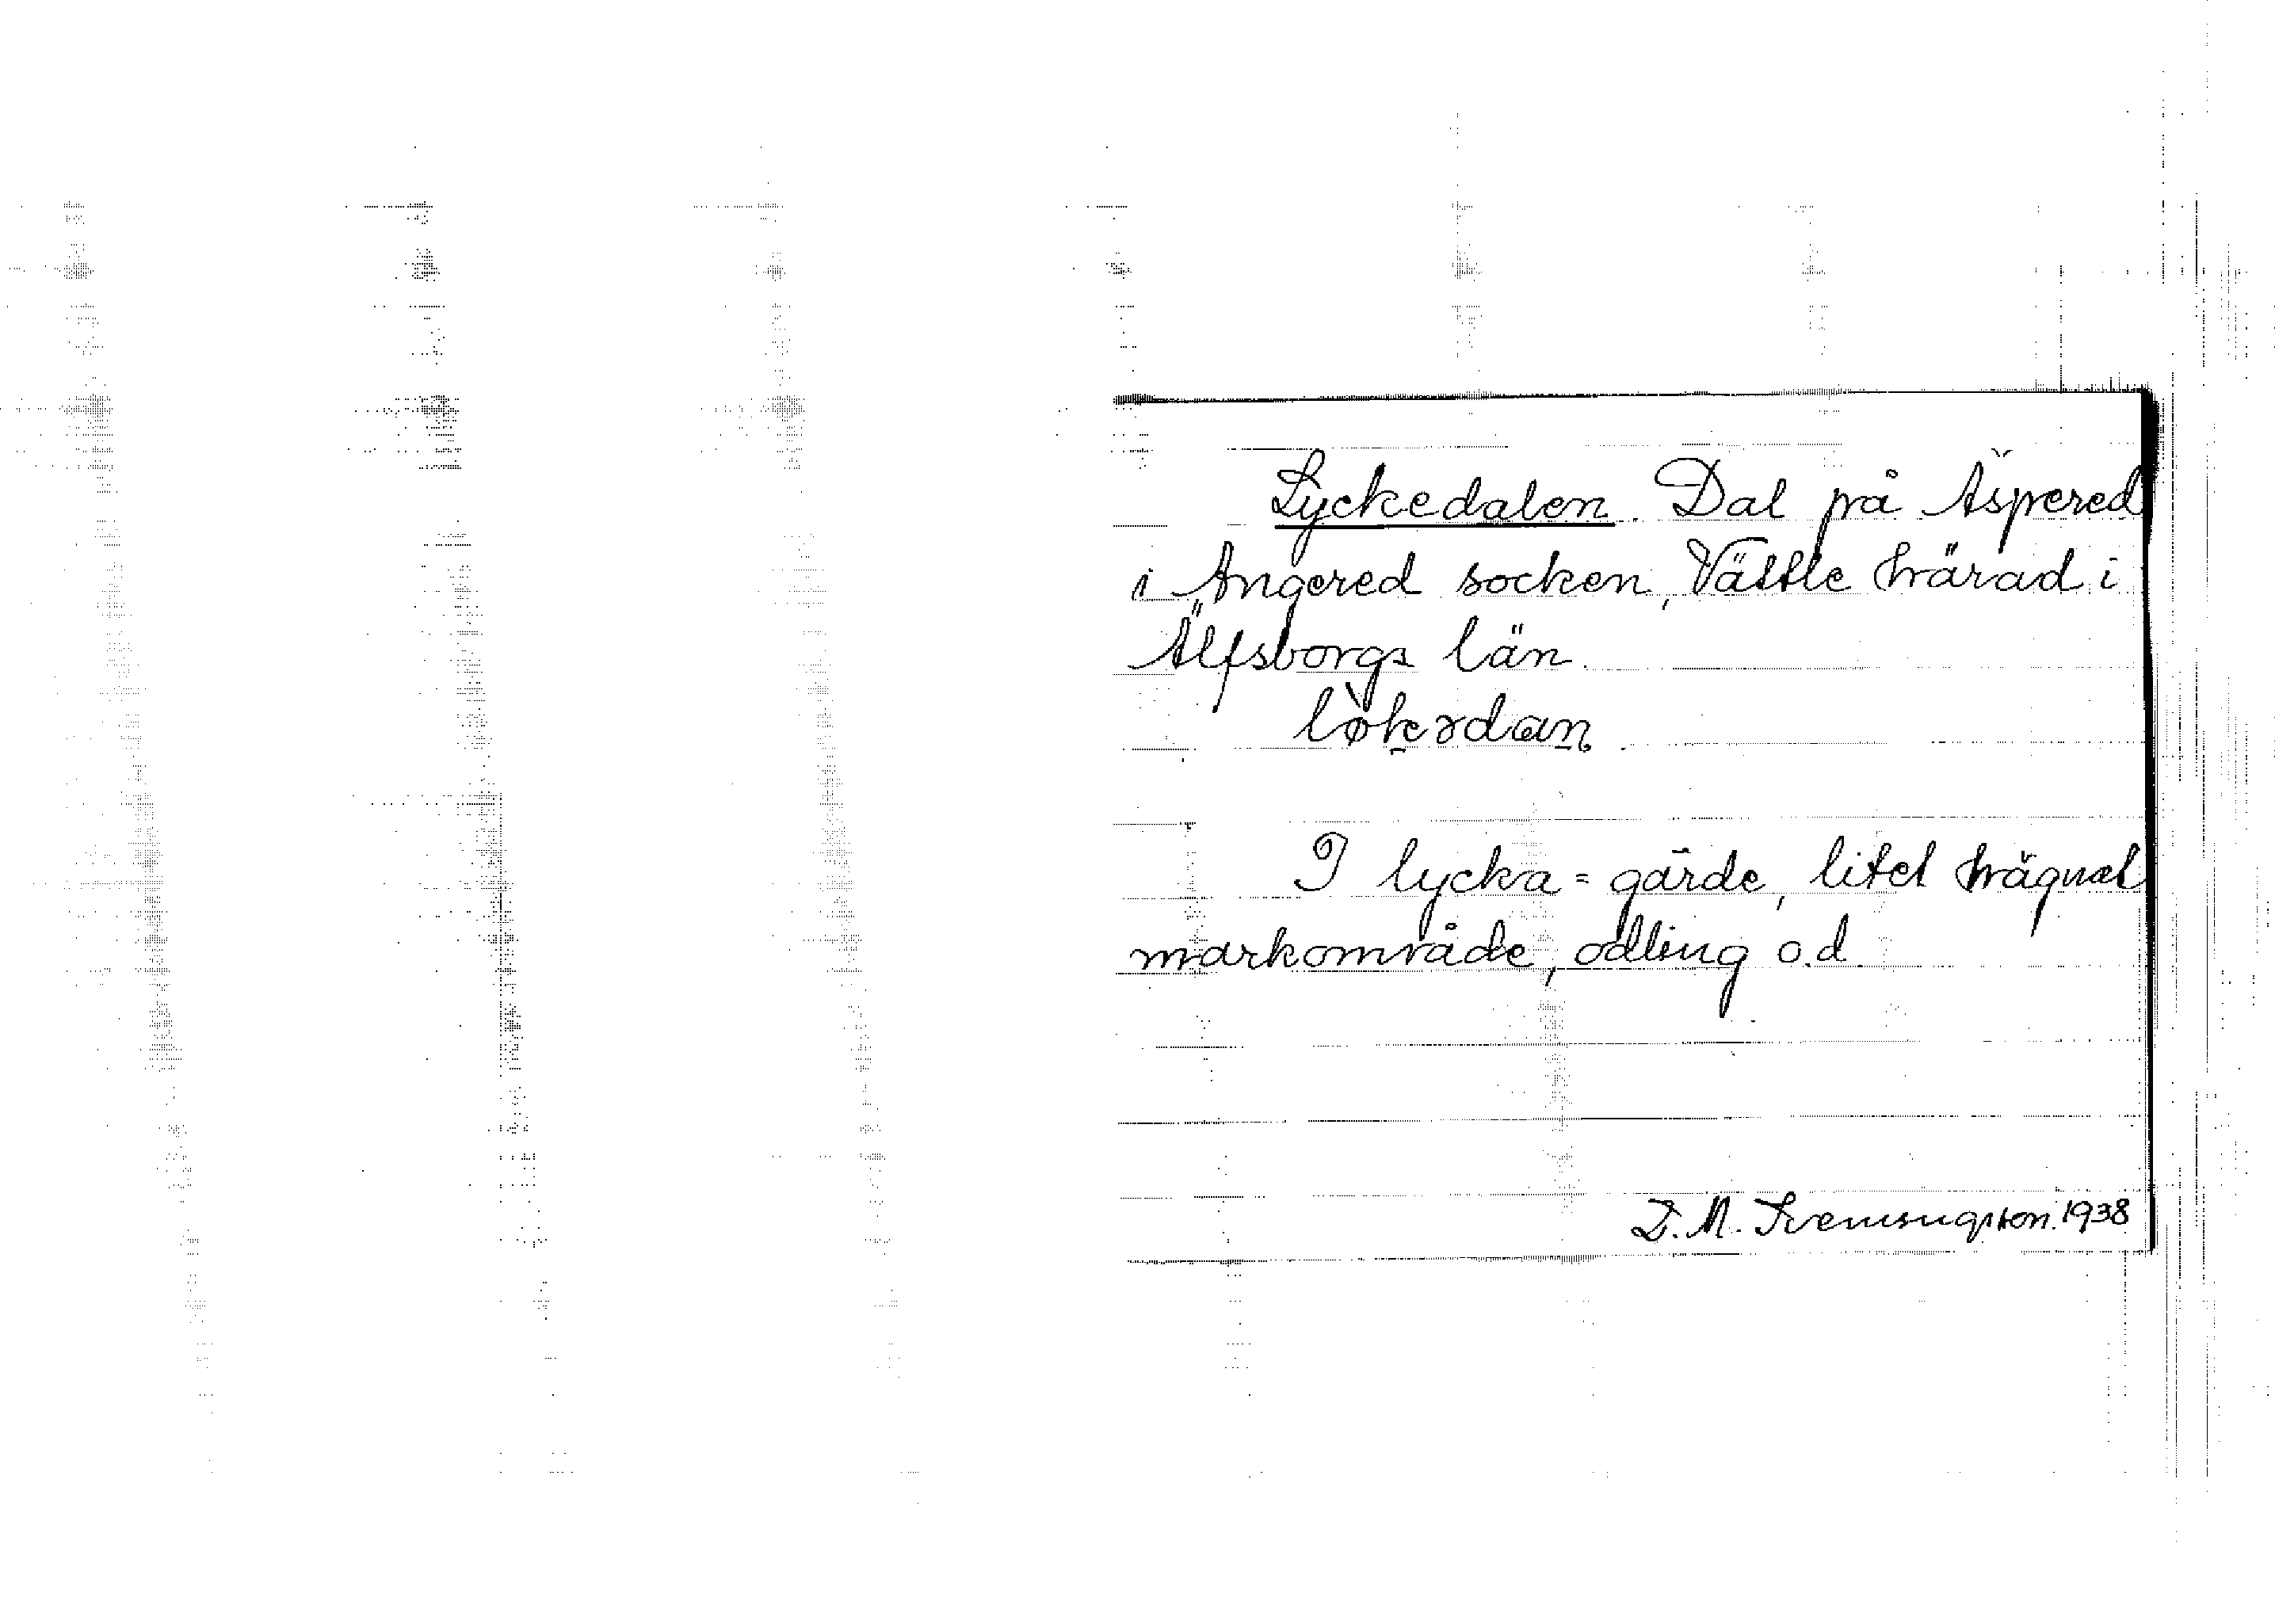 Lyckedalen. Dal på Äspered
i Angered socken, Vättle härad i
Älfsborgs län.
lø̀kədan
I lycka = gärde, litet hägnat
markområde, odling o.d.
D. M. 1938